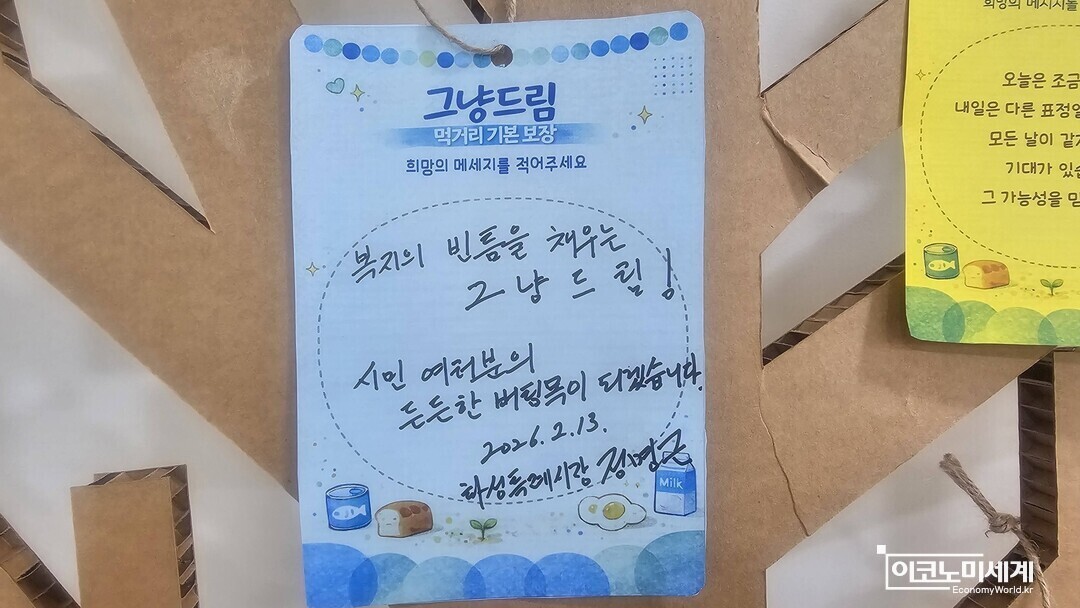 그냥드림
먹거리 기본 보장
희망의 메세지를 적어주세요
복지의 빈틈을 채우는
그냥드림!
시민 여러분의
든든한 버팀목이 되겠습니다.
2026. 2. 13.
화성특례시장 정명근
Milk
희망의 메시지를
오늘은 조금
내일은 다른 표정일
모든 날이 같지
기대가 있습
그 가능성을 믿
이코노미세계
EconomyWorld.kr